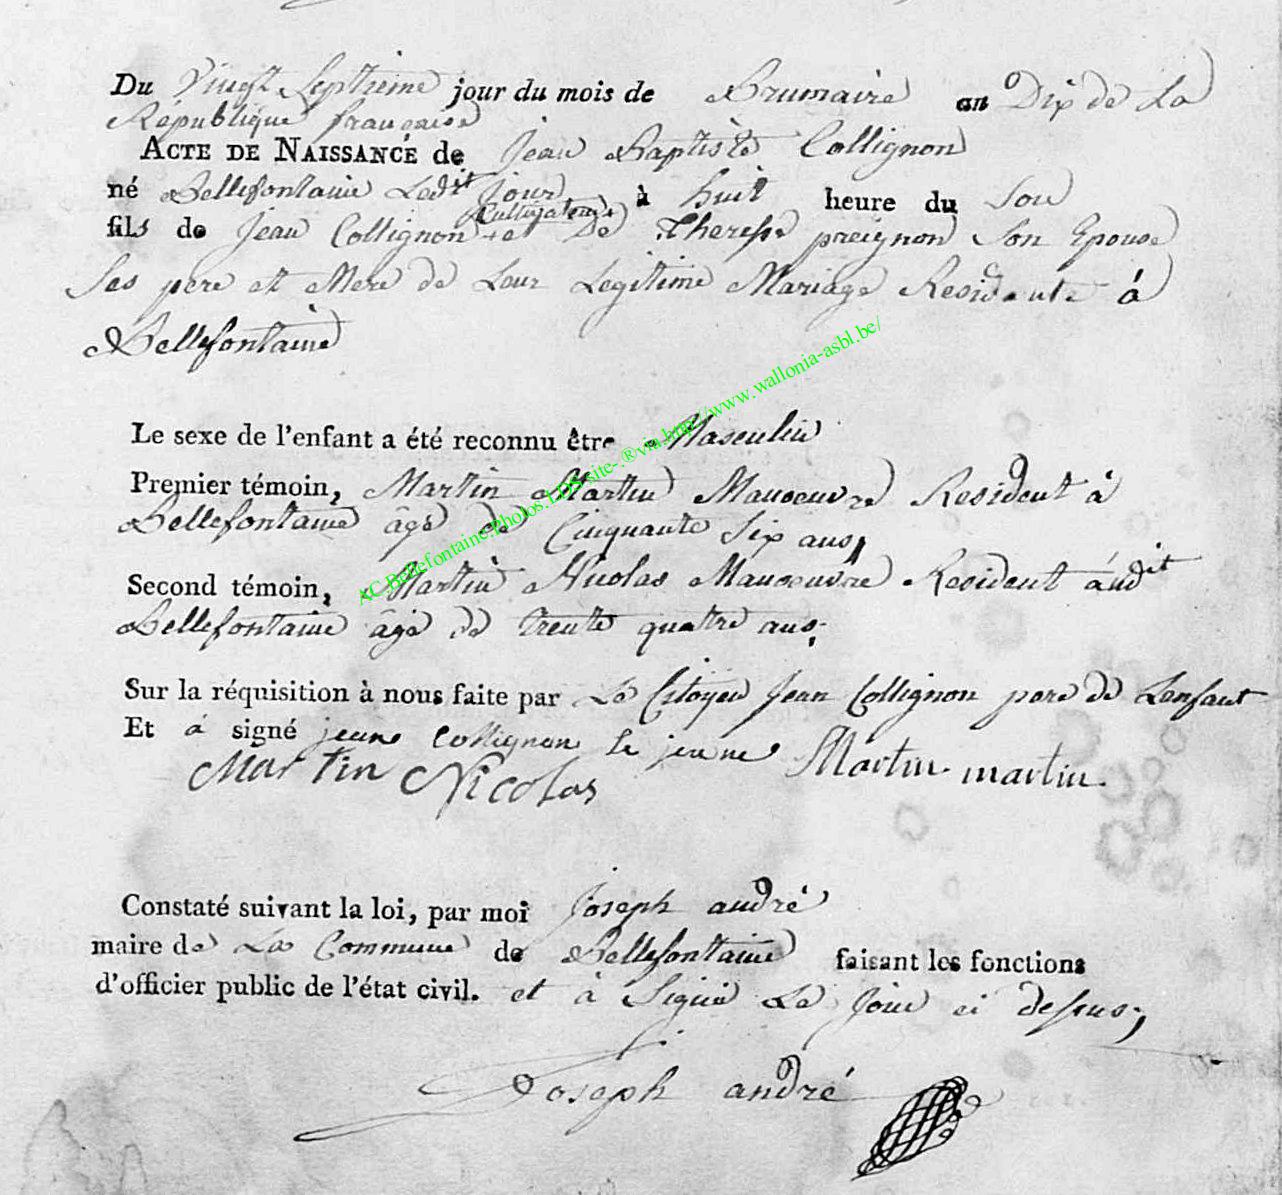 Du Vingt Septieme jour du mois de Brumaire an Dix de La
République francaise
ACTE DE NAISSANCE de Jean Baptiste Collignon
né Bellefontaine Ledit Jour à huit heure du Soir
Cultivateur
fils de Jean Collignon et De Therese preignon Son Epouse
Ses pere et Mere de Leur Legitime Mariage Residente á
Bellefontaine
Le sexe de l'enfant a été reconnu être Masculin
Premier témoin, Martin Martin Manoeuvre Resident á
Bellefontaine âgé de Cinquante Six ans,
Second témoin, Martin Nicolas Manoeuvre Resident áudit
Bellefontaine âgé de trente quatre ans;
Sur la réquisition à nous faite par Le Citoyen Jean Collignon pere de Lenfant
Et á signé jeune collignon le jeune Martin martin.
Martin Nicolas
Constaté suivant la loi, par moi Joseph andré
maire de La Commune de Bellefontaine faisant les fonctions
d'officier public de l'état civil. et à Signé Le Jour ci dessus;
Joseph andré
AC.Bellefontaine.Photos.LDS.site-.®via.http//www.wallonia-asbl.be/